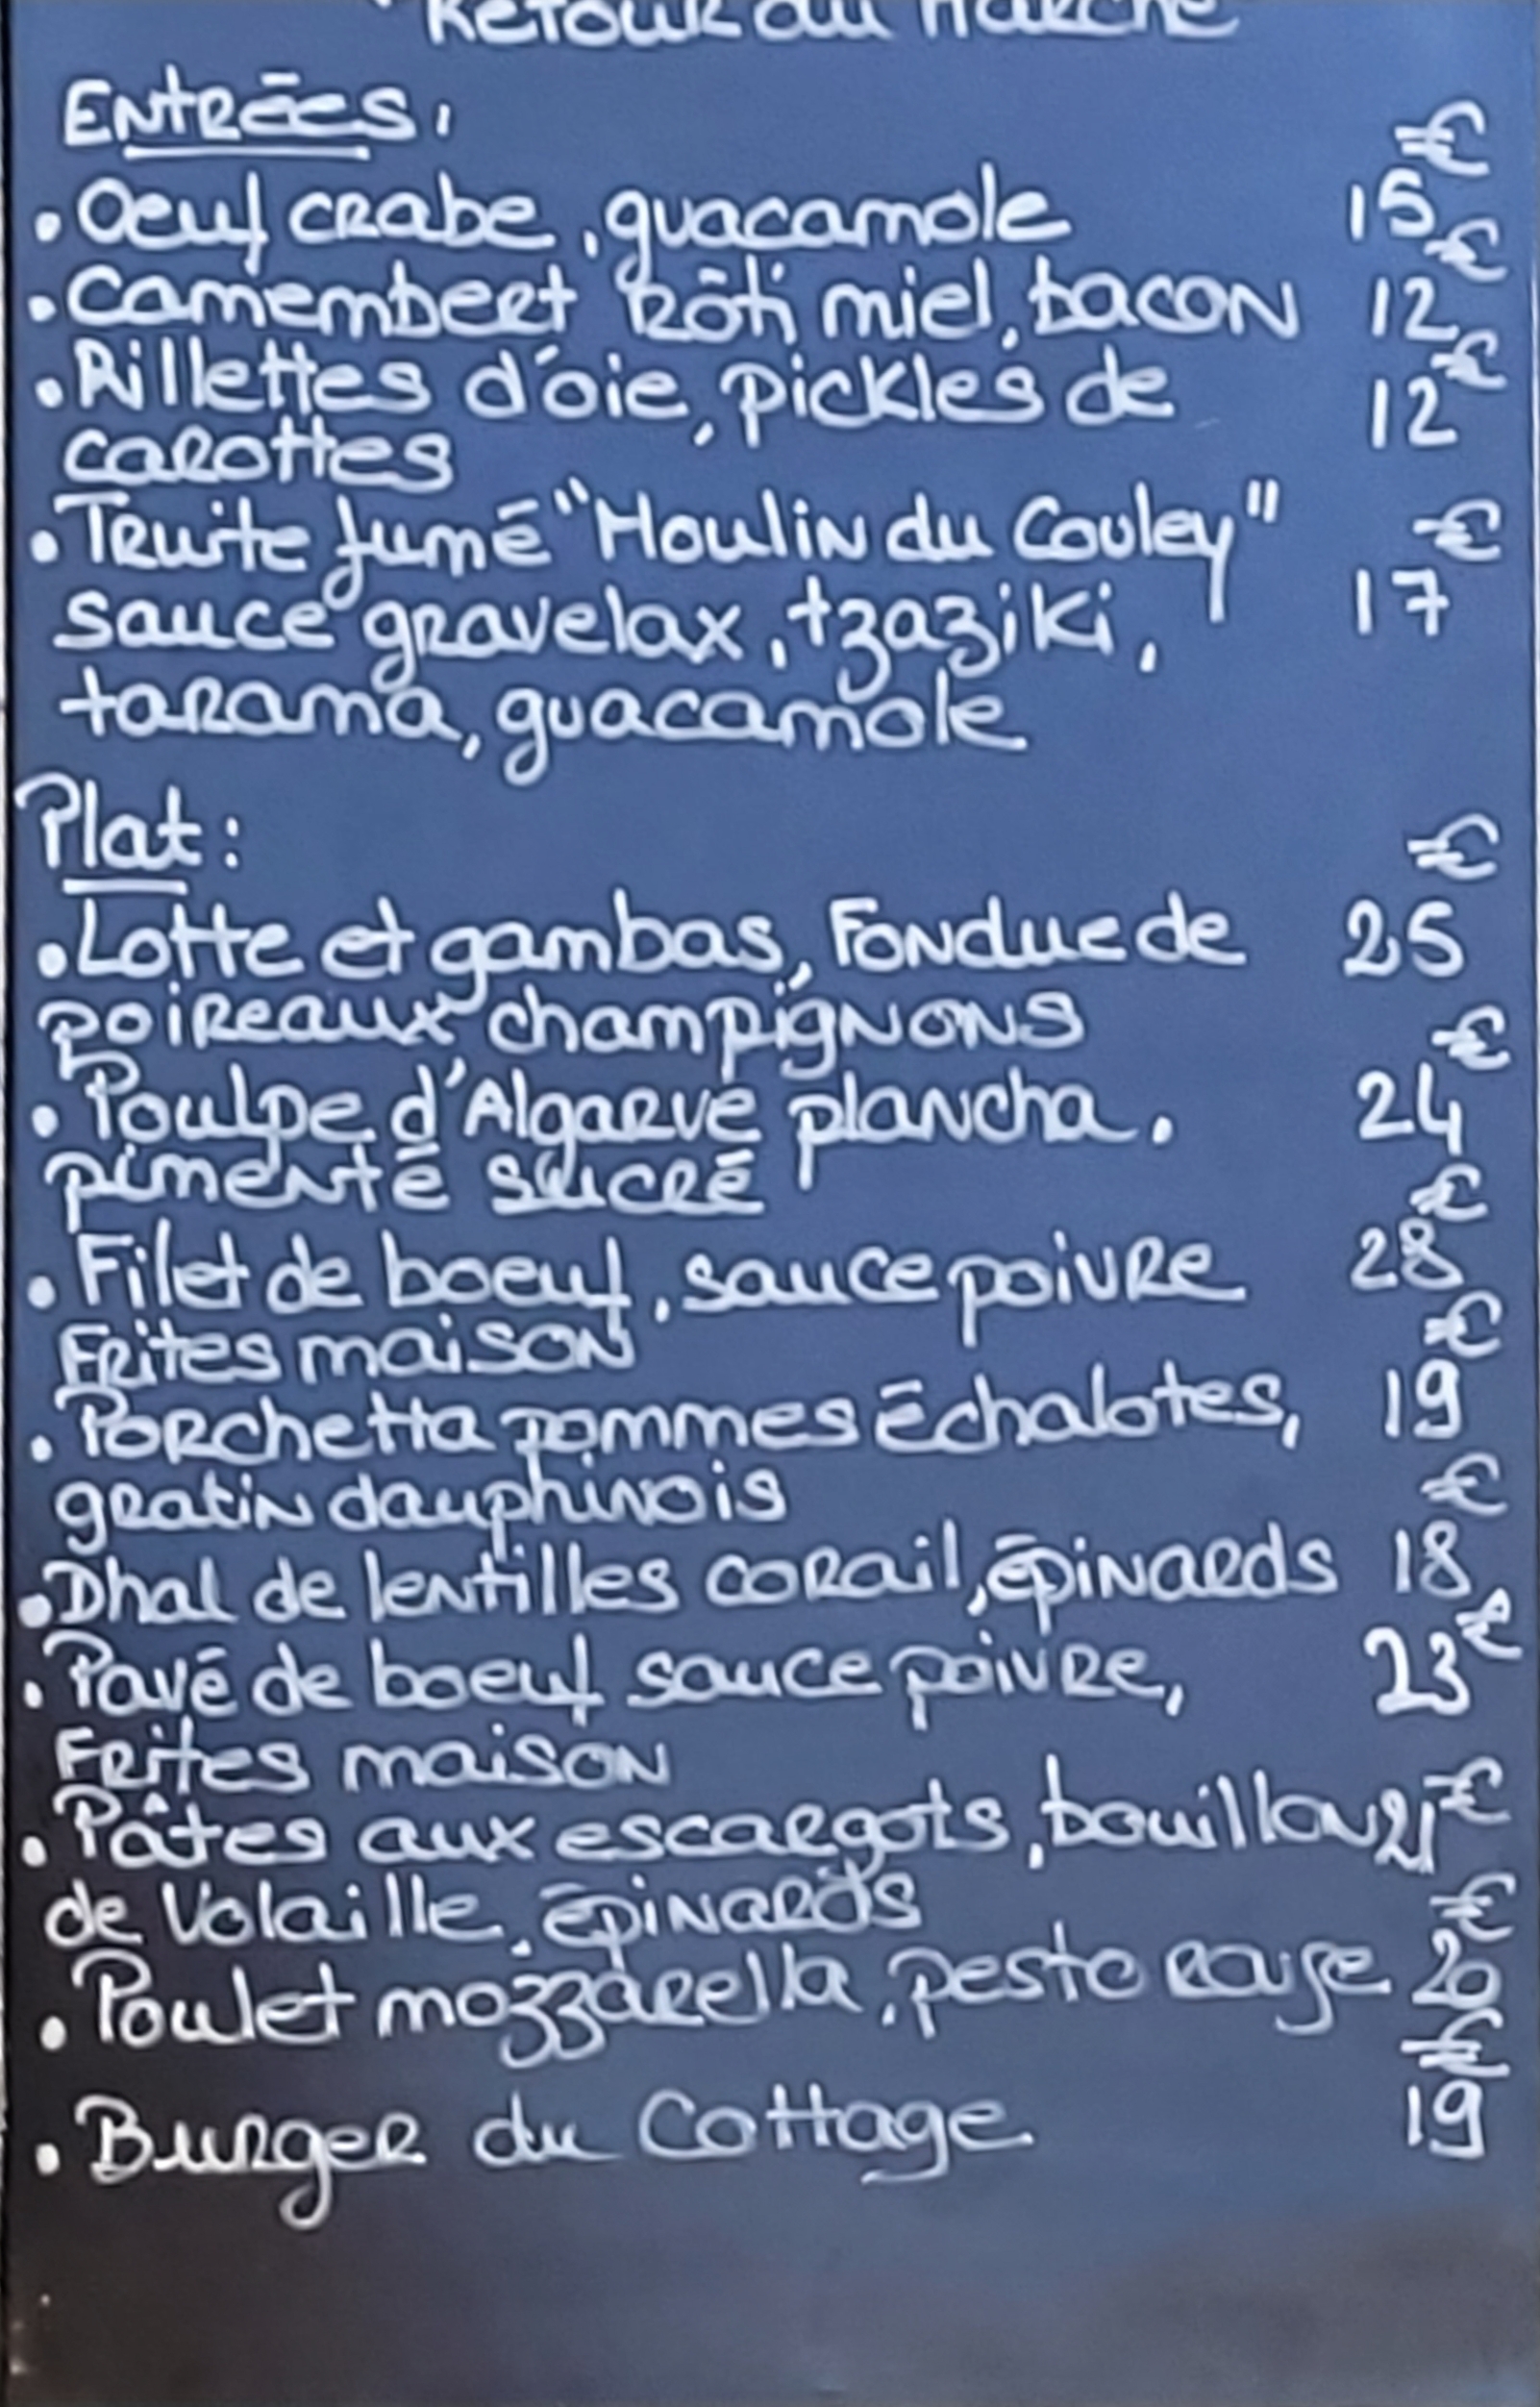 Retour du Marché
Entrées:
• Oeuf crabe, guacamole 15€
• Camembert rôti miel, bacon 12€
• Rillettes d'oie, pickles de 12€
carottes
• Truite fumé "Moulin du Couley" 17€
sauce gravelax, tzaziki,
tarama, guacamole
Plat:
• Lotte et gambas, Fondue de 25€
poireaux champignons
• Poulpe d'Algarve plancha. 24€
pimenté sucré
• Filet de boeuf, sauce poivre 28€
Frites maison
• Porchetta pommes échalotes, 19€
gratin dauphinois
• Dhal de lentilles corail, épinards 18€
• Pavé de boeuf sauce poivre, 23€
Frites maison
• Pâtes aux escargots, bouillon 21€
de Volaille, épinards
• Poulet mozzarella, pesto rouge 20€
• Burger du Cottage 19€